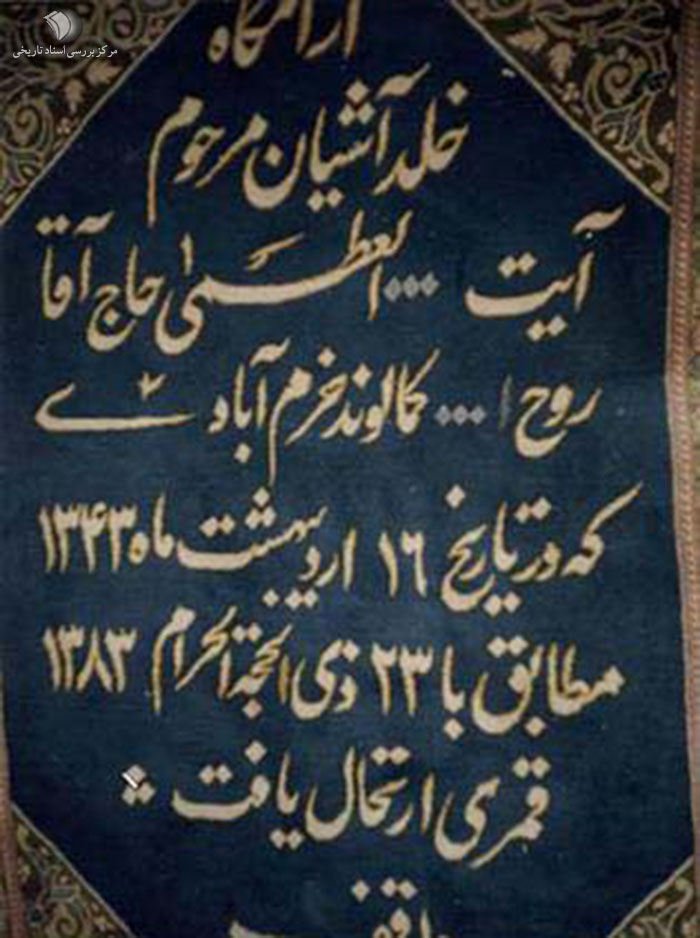 مرکز بررسی اسناد تاریخی
آرامگاه
خلد آشیان مرحوم
آیت ... العظمیٰ حاج آقا
روح ا... کمالوند خرم آبادی
که در تاریخ ۱۶ اردیبهشت ماه ۱۳۴۳
مطابق با ۲۳ ذی الحجة الحرام ۱۳۸۳
قمری ارتحال یافت